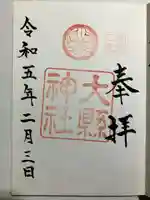 奉拝
大縣
神社
令和五年二月三日